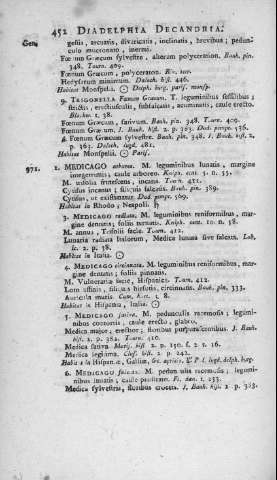 452 DIADELPHIA DECANDRIA.
gestis, arcuatis, divaricatis, inclinatis, brevibus; pedun
culo mucronato, inermi.
Fœnum Græcum sylvestre, alterum polyceration. Bauh. pin.
348. Tourn. 409.
Fœnum Græcum, polyceraton. Riv.
Hedysarum minimum. Dalech. hist. 446.
Habitat Monspelii. Dalph. burg. paris. monsp.
9. TRIGONELLA Fœnum Græcum. T. leguminibus sessilibus;
strictis, erectiusculis, subfalcatis, acuminatis, caule erecto.
Blackw. t. 38.
Fœnum Græcum, sativum. Bauh. pin. 348. Tourn. 409.
Fœnum Græcum. J. Bauh. hist. 2. p. 363. Dod. pempt. 536.
β Fœnum Græcum sylvestre. Bauh. pin. 348. J. Bauh. hist. 2,
p. 365. Dalech. lugd. 481.
Habitat Monspelii. Parif.
971. 1. MEDICAGO arborea. M. leguminibus lunatis, margine
integerrimis, caule arboreo. Kniph. cent. 5. n. 55.
M. trifolia frutescens, incana. Tourn. 412.
Cytisus incanus; siliquis falcatis. Bauh. pin. 389.
Cytisus, ut existimatur Dod. pempt. 569.
Habitat in Rhodo; Neapoli. ♄
3. MEDICAGO radiata. M. leguminibus reniformibus, mar
gine dentatis, foliis ternatis. Kniph. cent. 10. n. 58.
M. annua, Trifolii facie. Tourn. 412.
Lunaria radiata Italorum, Medica lunata sive falcata. Lob.
ic. 2. p. 38.
Habitat in Italia. ☉
4. MEDICAGO circinnata. M. leguminibus reniformibus, mar
gine dentatis; foliis pinnatis.
M. Vulneraria facie, Hispanica. Tourn. 412.
Loto affinis, siliquis hirsutis, circinnatis. Bauh. pin. 333.
Auricula muris. Cam. hort. t. 8.
Habitat in Hispania, Italia. ☉
5. MEDICAGO sativa. M. pedunculis racemosis; legumi-
nibus contortis, caule erecto, glabro.
Medica major, erectior; floribus purpurascentibus. J. Bauh.
hist. 2. p. 382. Tourn. 410.
Medica sativa. Moris. hist. 2. p. 150. s. 2. t. 16.
Medica legitima. Clus. hist. 2. p. 242.
6. MEDICAGO falcata. M. pedunculis racemosis; legumi-
nibus lunatis; caule prostrato. Fl. dan. t. 233.
Medica sylvestris, floribus croceis. J. Bauh. hist. 2 p. 383.